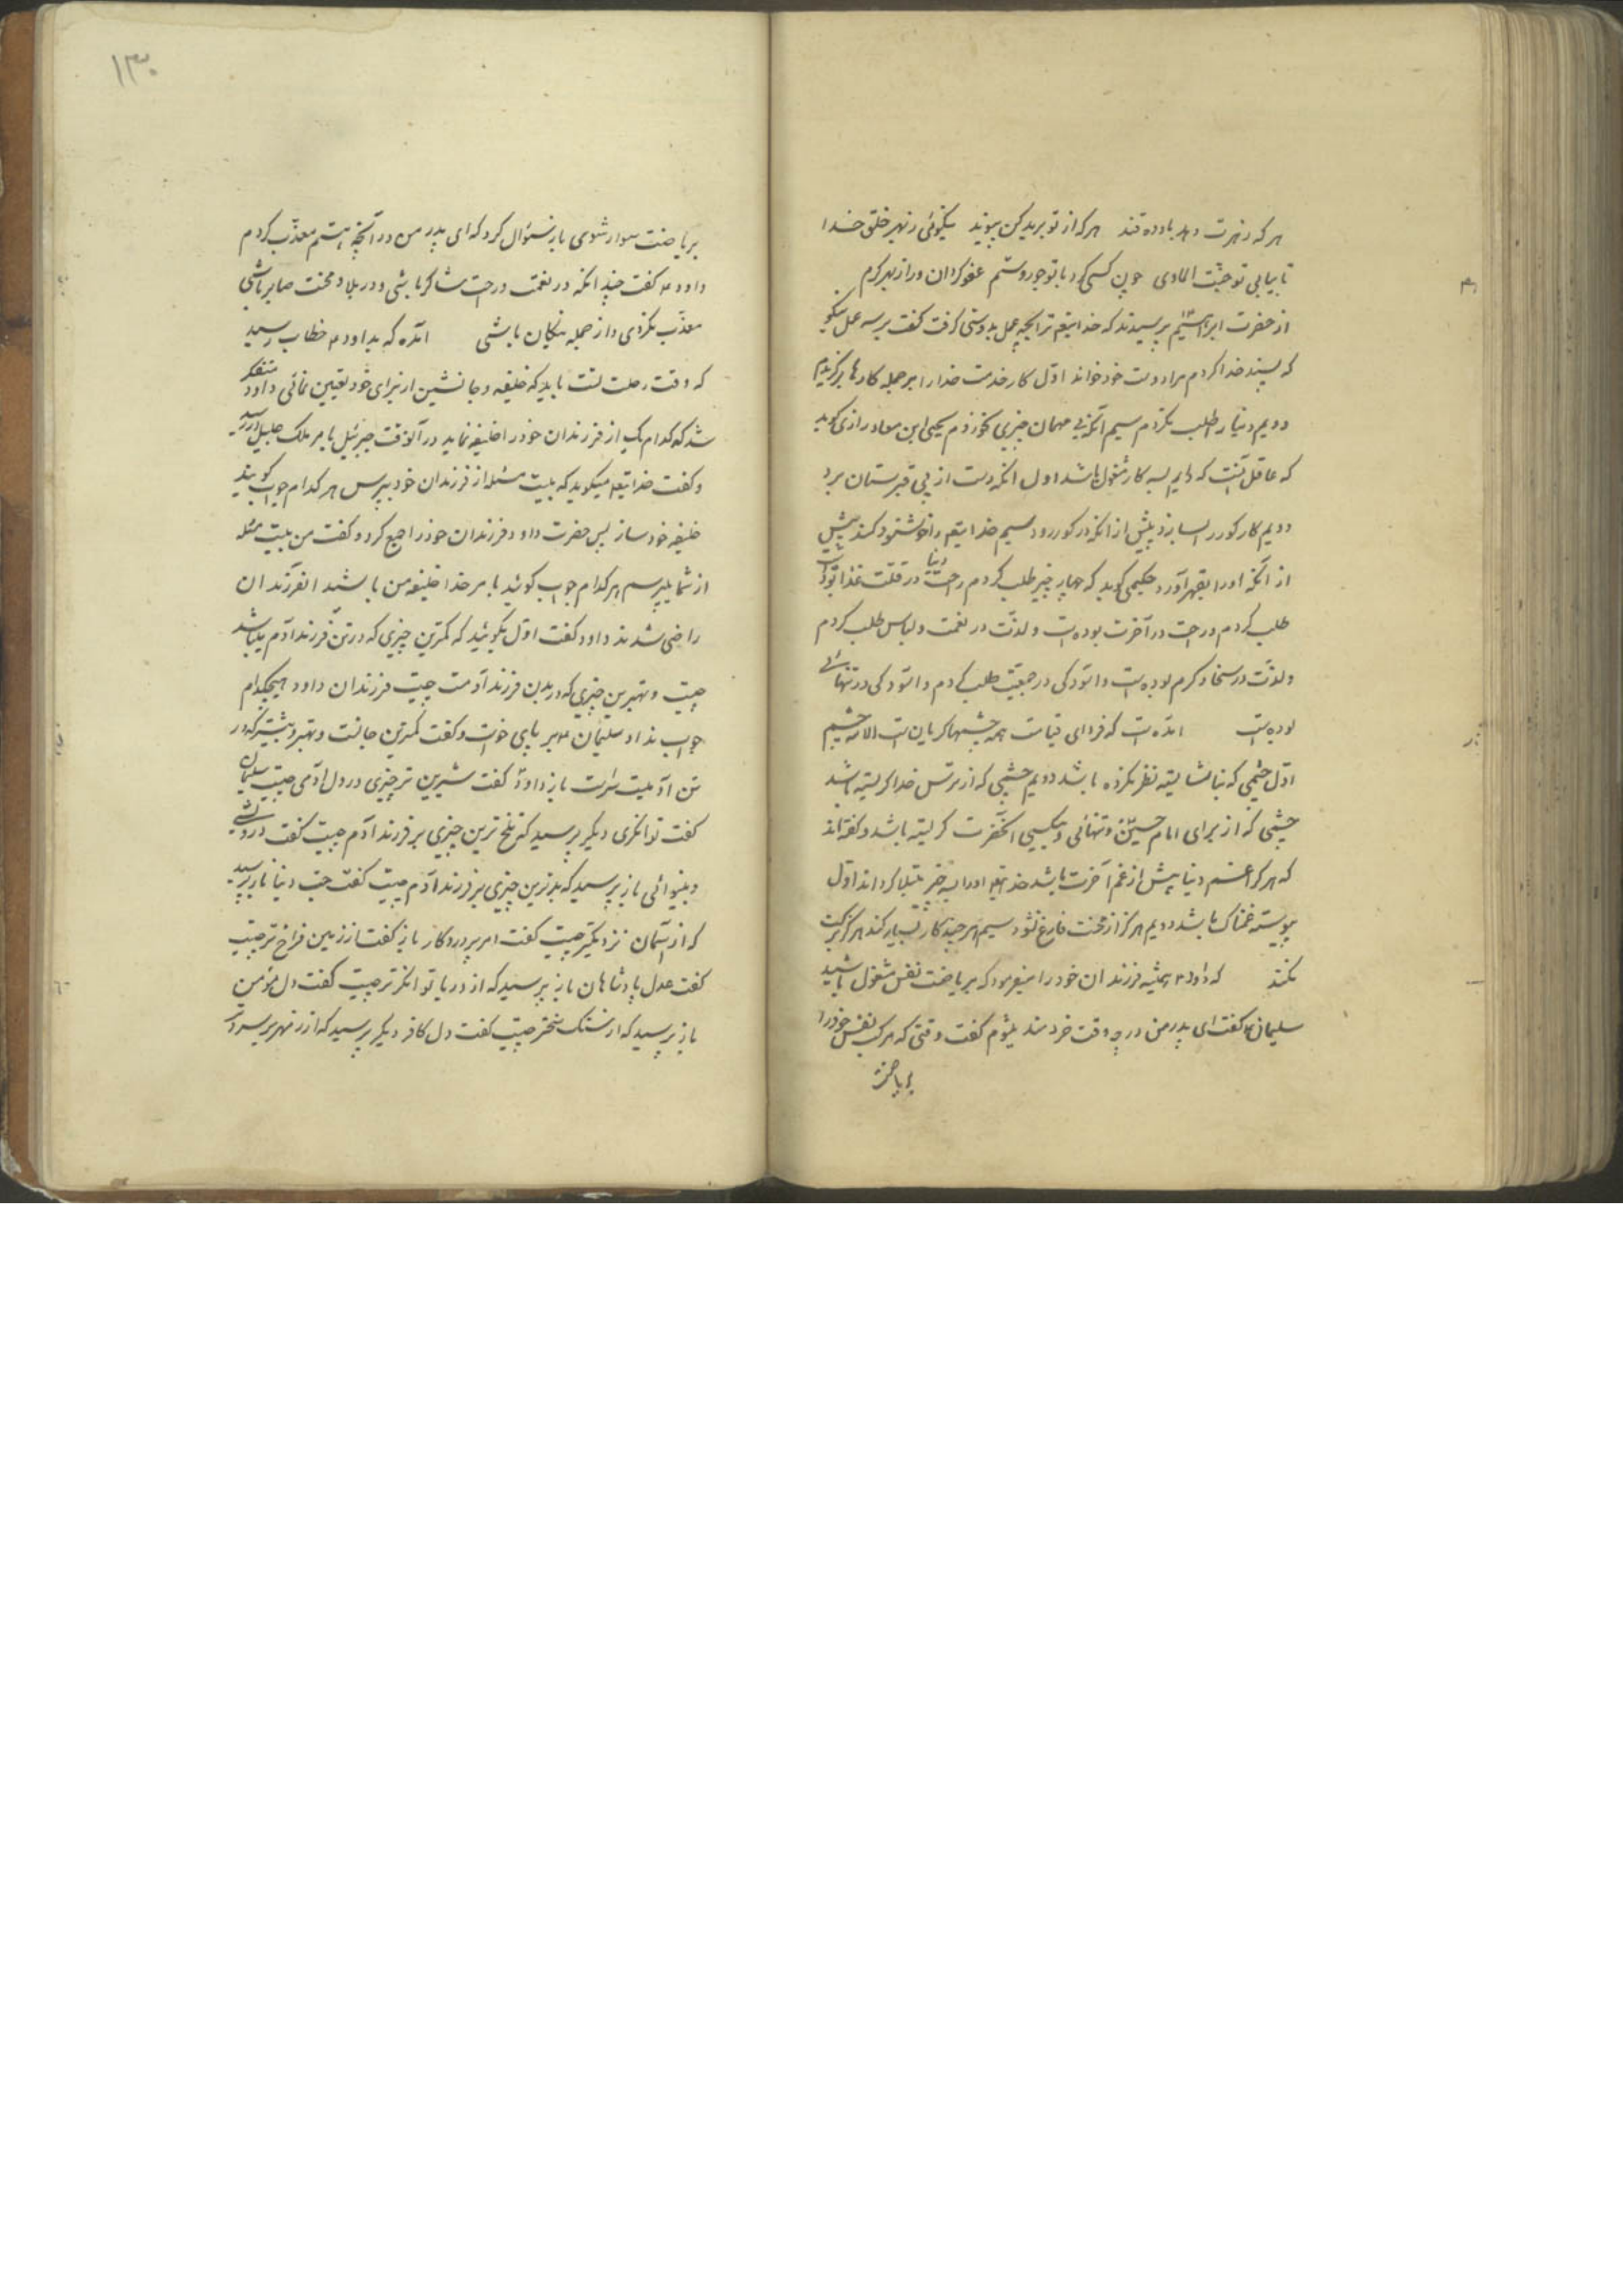 هر که زهرت دهد باو ده قند هر که از تو برید کن پیوند نیکوئی ز بهر خلق خدا
تا بیابی تو جنت الماوی چون کسی کرد با تو جور و ستم عفو کردان ورا ز بهر کرم
از حضرت ابراهیم پرسیدند که خدایتعم ترا بچه عمل بدوستی کرفت کفت بر سه عمل نیکو
که پسند خدا کردم مرا دوست خود خواند اول کار خدمت خدا را بر جمله کارها برگزیدم
دویم دنیا را طلب نکردم سیم آنکه بی مهمان چیزی نخوردم یحیی ابن معاد رازی کوید
که عاقل آنست که دایم بسه کار مشغول باشد اول انکه دست از پی قبرستان برد
دویم کار کور را بسازد پیش از انکه در کور رود سیم خدایتعم را خوشنود کند پیش
از آنکه اورا بقهر آورد حکیمی کوید که چهار چیز طلب کردم راحت دنیا در قلت غذا بود
طلب کردم و راحت در آخرت بوده است و لذت در نعمت و لباس طلب کردم
و لذت در سخا و کرم بوده است و اسودکی در جمعیت طلب کردم و اسودکی در تنهائی
بوده است امده است که فردای قیامت همه چشمها کریان است الا سه چشم
اول چشمی که بناشایسته نظر نکرده باشد دویم چشمی که از ترس خدا کریسته باشد
چشمی که از برای امام حسین و تنهائی و بیکسی انحضرت کریسته باشد و کفته اند
که هر کرا غم دنیا پیش از غم آخرت باشد خدایتعم اورا بسه چیز مبتلا کرداند اول
پیوسته غمناک باشد دویم هرکز از محنت فارغ نشود سیم هر چند کار بسیار کند هرکز برکت
نکند که داود م همیشه فرزندان خود را میفرمود که بریاضت نفس مشغول باشید
سلیمان کفت ای پدر من در چه وقت خردمند میشوم کفت وقتی که مرکب نفس خود را
بریاضت
۱۳۰
بریاضت سوار شوی باز سئوال کرد که ای پدر من در آنچه هستم معذب کردم
داود م کفت چند انکه در نعمت و راحت شاکر باشی و در بلا و محنت صابر باشی
معذب نکردی و از جمله نیکان باشی امده که بداود م خطاب رسید
که وقت رحلت تست باید که خلیفه و جانشین از برای خود تعیین نمائی داود متفکر
شد که کدام یک از فرزندان خود را خلیفه نماید در آنوقت جبرئیل بامر ملک جلیل در رسید
و کفت خدایتعم میکوید که بیست مسئله از فرزندان خود بپرس هر کدام جواب کویند
خلیفه خود ساز پس حضرت داود فرزندان خود را جمع کرد و کفت من بیست مسئله
از شما میپرسم هر کدام جواب کوئید بامر خدا خلیفه من باشد انفرزندان
راضی شدند داود کفت اول بکوئید که کمترین چیزی که در تن فرزند آدم میباشد
چیست و بهترین چیزی که در بدن فرزند آدمست چیست فرزندان داود هیچکدام
جواب نداد سلیمان م بر پای خواست و کفت کمترین جانست و بهتر و بیشتر که در
تن آدمیست باز داود کفت شیرین تر چیزی در دل ادمی چیست سلیمان
کفت توانکری دیکر پرسید که تلخ ترین چیزی بر فرزند آدم چیست کفت درویشی
و بینوائی باز پرسید که بدترین چیزی بر فرزند آدم چیست کفت حب دنیا باز پرسید
که از آسمان نزدیکتر چیست کفت امر پروردکار باز کفت از زمین فراخ تر چیست
کفت عدل پادشاهان باز پرسید که از دریا توانکرتر چیست کفت دل مؤمن
باز پرسید که از سنک سختر چیست کفت دل کافر دیکر پرسید که از زمهریر سردتر